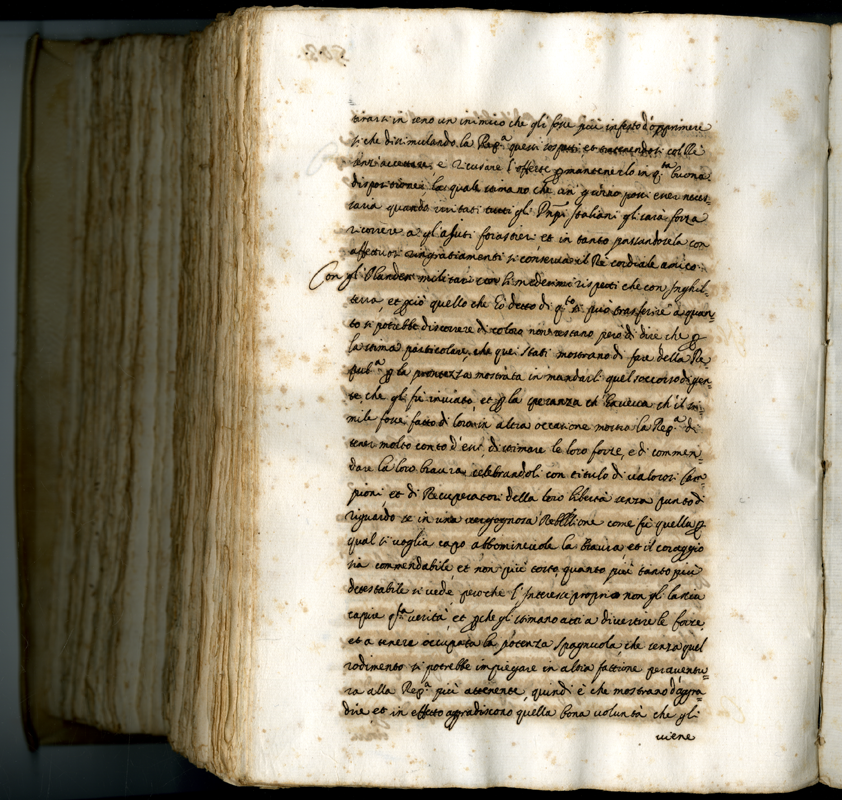 tirarsi in seno un inimico che gli fosse più infesto d'opprimere
si che dissimulando la Rep.ª questi sospetti et colle
e ricusare l'offerte mantenerlo in q.ta buona
dispositione la quale stimano che un giorno possi esser neces
saria quando irritati tutti gli Italiani gli sarà forza
ricorrere a gl'Ajuti forastieri et in tanto passandosela con
affettuosi ringratiamenti si conserva il Rè cordiale amico.
Con gl'Olandesi militari con li medesimi rispetti che con Inghil-
terra, et ciò quello che Io detto di q.to si può trasferire a quan
to si potrebbe discorrere di coloro non restano però di dire che p
la stima particolare, che quei stati mostrano di fare della Re
pub.ª p la prontezza mostrata in mandarli quel soccorso di gen
te, che gli fù inviato et p la speranza ch'ch'il si-
mile fosse fatto di loro in altra occasione mostra la Rep.ª di
tener molto conto d'essi, di stimare le loro forze, e di commen-
dare la loro bravura celebrandoli con titulo di valorosi Cam-
pioni et di Recuperatori della loro libertà senza punto di
riguardo se in una vergognosa Rebellione come fù quella p
qual si voglia capo abbominevole la bravura et il coraggio
sia commendabile, et non più tosto quanto più tanto più
detestabile si vede perche l'Interesse proprio non gli lascia
capire q.sta verità, et pche gl'stimano atti a divertire le forze,
et a tenere occupata la potenza spagnuola, che senza quel
rodimento si potrebbe impiegare in altra fattione per aventu-
ra alla Rep.ª più attenente, quindi è che mostrano d'aggra-
dire et in effetto aggradiscono quella bona voluntà che gli
viene